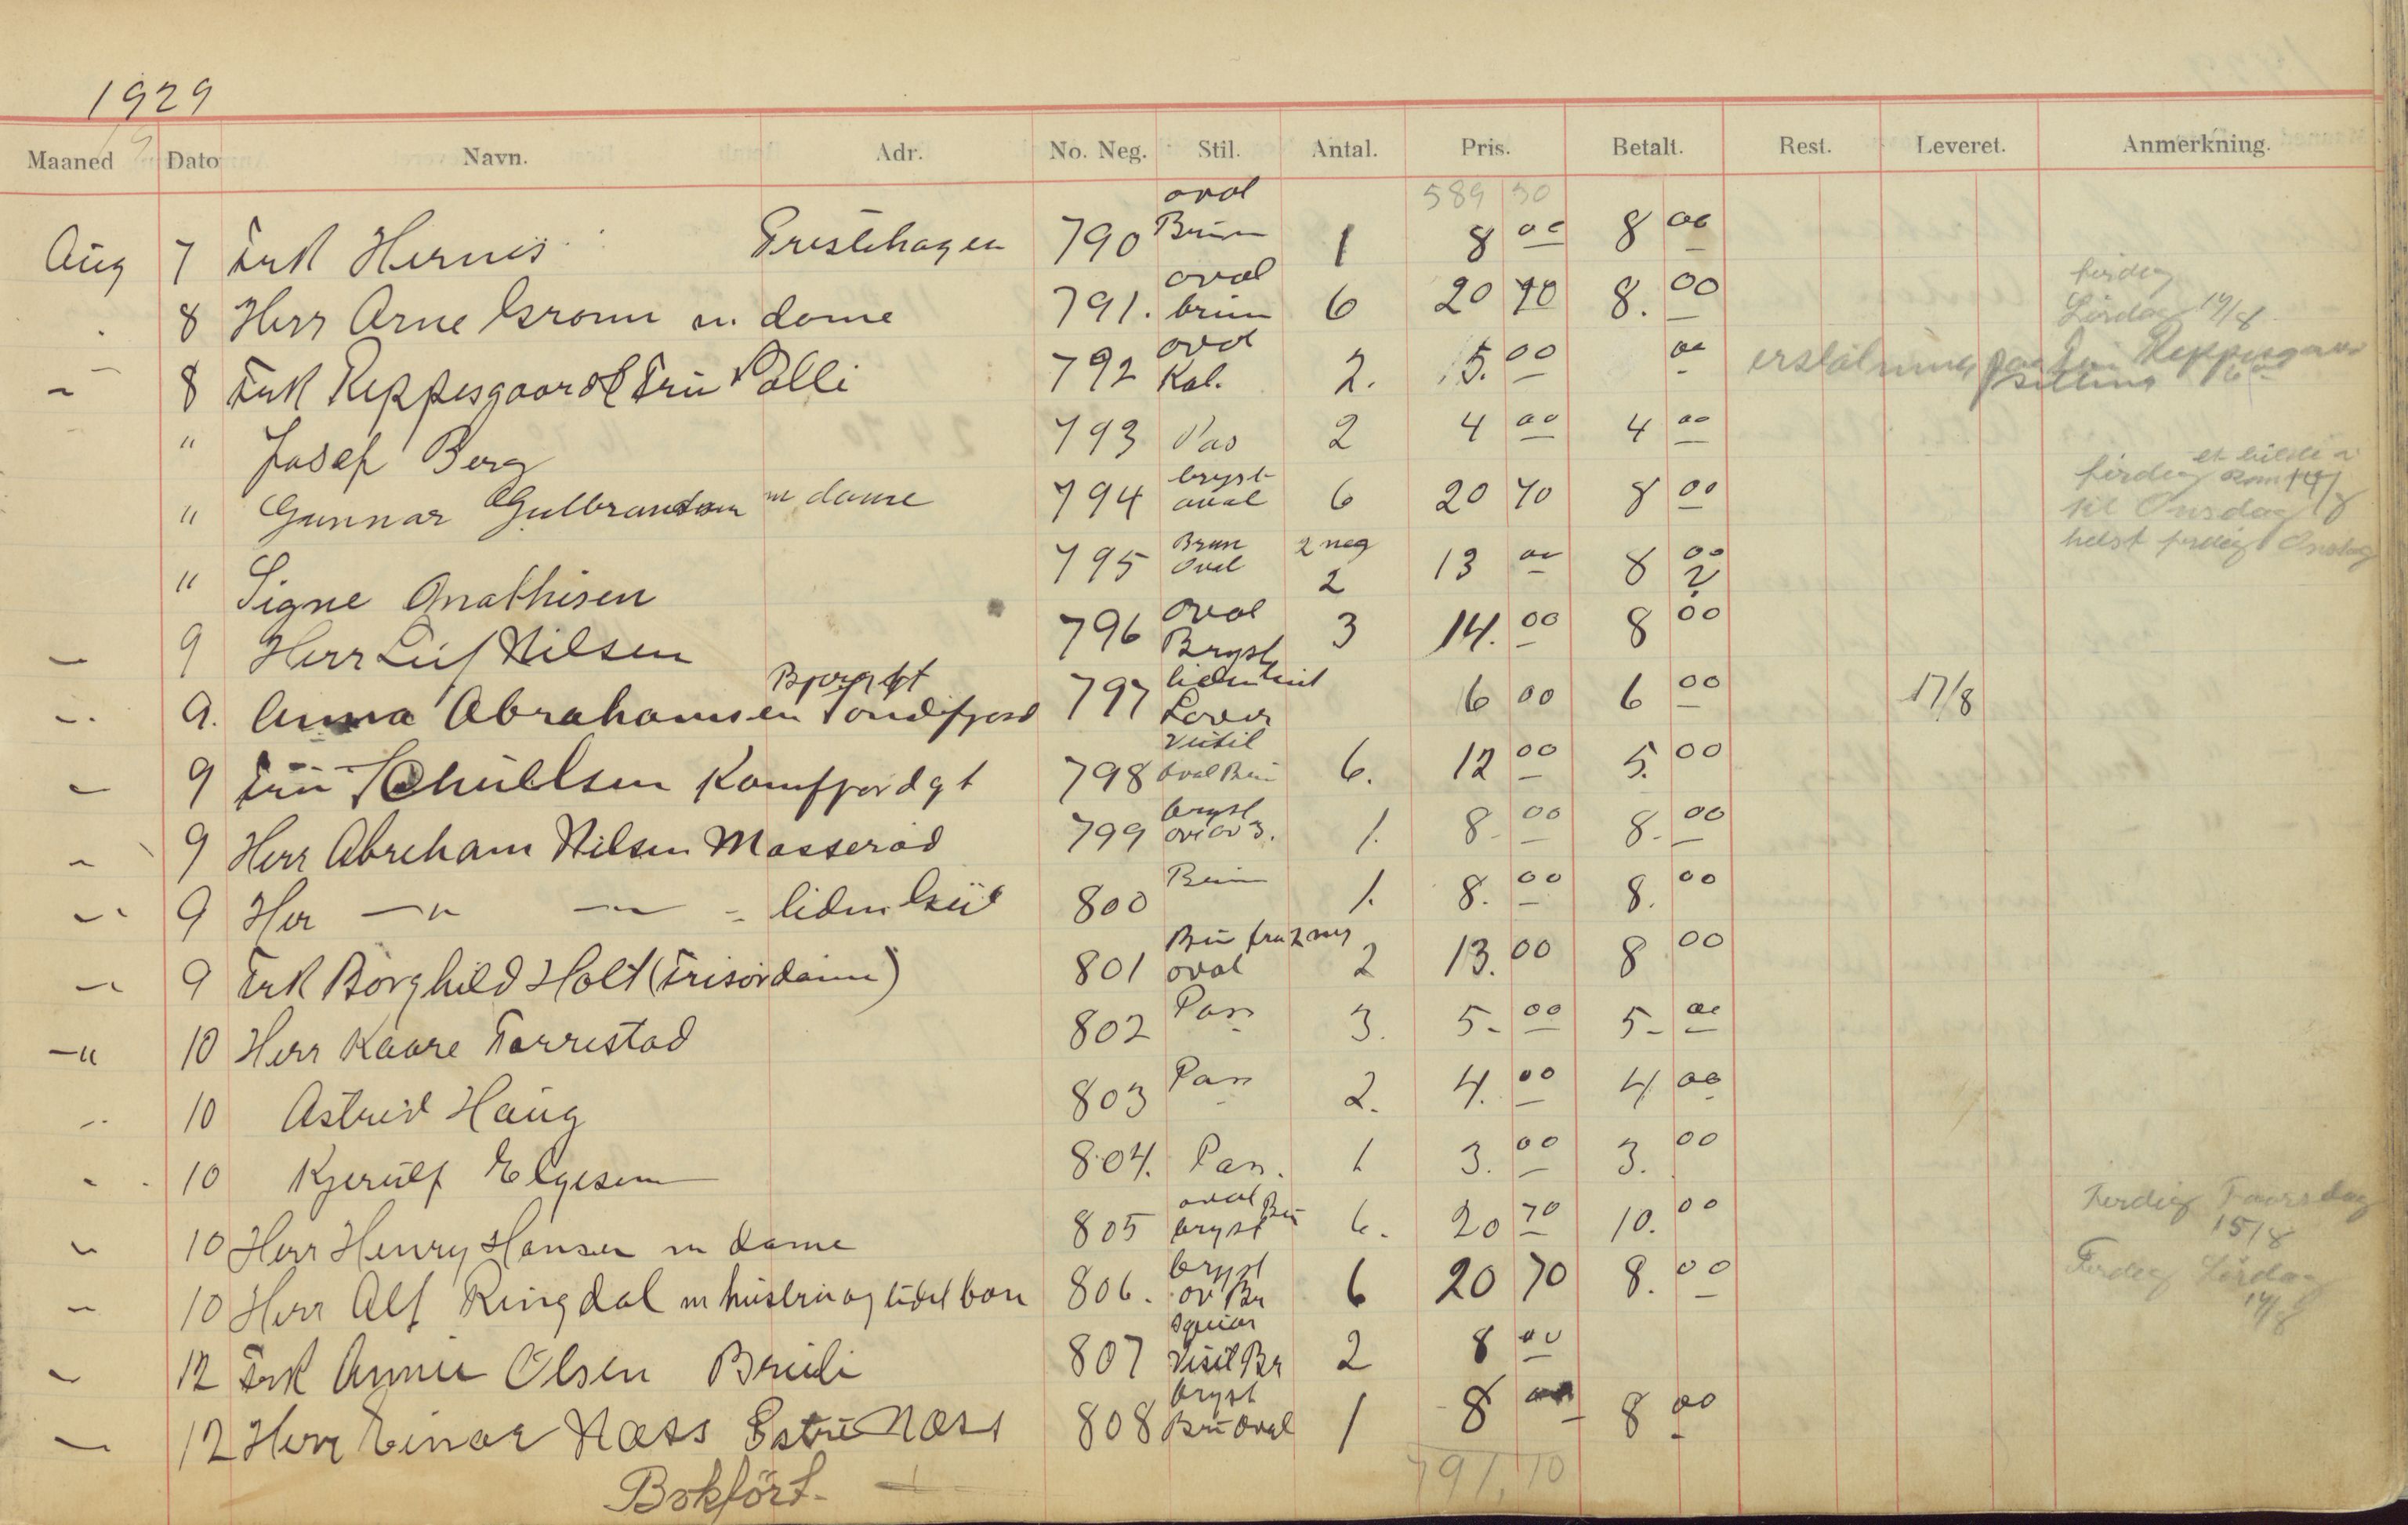 1929
Maaned Dato Navn. Adr. No. Neg. Stil. Antal. Pris. Betalt. Rest. Leveret. Anmerkning.
589 50
oval
Aug 7 Frk Hernes Prestehagen 790 Brun 1 8 00 8 00
oval færdig
8 Herr Arne Gronn m. dame 791. brun 6 20 70 8. 00 Lördag 19/8
oval
8 Frk Reppesgaard & Fru Palli 792 Kab. 2. 15. 00 00 Reppesgaard sitting
" Josef Berg 793 Pas 2 4 00 4 00
bryst
" Gunnar Gulbrandsen m dame 794 oval 6 20 70 8 00 færdig til Onsdag
Brun 2 neg helst ferdig Onsdag
" Signe Mathisen 795 Oval 2 13 00 8 00
2
9 Herr Leif Nilsen 796 oval Bryst 3 14. 00 8 00
9. Anna Abrahamsen 797 6 00 6 00 17/8
visit
9 Fru Schultsen Kamfjordgt 798 oval Brun 6. 12 00 5. 00
bryst
9 Herr Abreham Nilsen Masserød 799 1. 8. 00 8. 00
9 Her —"— —"— 800 Brun 1. 8. 00 8. 00
Bru fra 2 neg
9 Frk Borghild Holt (Frisördame) 801 oval 2 13. 00 8 00
—" 10 Herr Kaare Torrestad 802 Pass 3. 5- 00 5- 00
10 Astrid Haug 803 Pass 2. 4. 00 4 00
10 Kjerulf Elgesem 804. Pas. 1 3. 00 3. 00
oval Bru Ferdig Taarsdag
10 Herr Henry Hansen m dame 805 bryst 6. 20 70 10. 00 15/8
bryst Ferdig Lördag
10 Herr Alf Ringdal m hustru og lidet barn 806. ov Br 6 20 70 8. 00 17/8
12 Frk Annie Olsen 807 Visit Br 2 8 00
bryst
12 Herr Einar Næss Østre Næss 808 Bru oval 1 8 00 8 00
Bokfört. 791,10